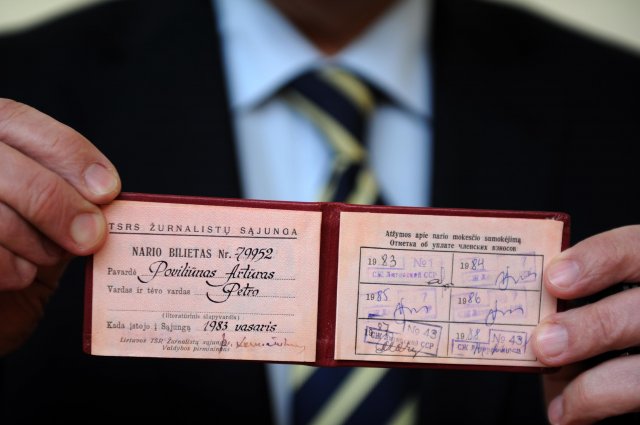 TSRS ŽURNALISTŲ SĄJUNGA
NARIO BILIETAS Nr. 79952
Pavardė Poviliūnas Artūras
Vardas ir tėvo vardas Petro
(literatūrinis slapyvardis)
Kada įstojo į Sąjungą 1983 vasaris
Lietuvos TSR Žurnalistų sąjungos
Valdybos pirmininkas
Atžymos apie nario mokesčio sumokėjimą
Отметка об уплате членских взносов
1983 № 1 1984
СЖ Литовской ССР
1985 1986
1987 № 43 1988 № 43
СЖ Литовской ССР